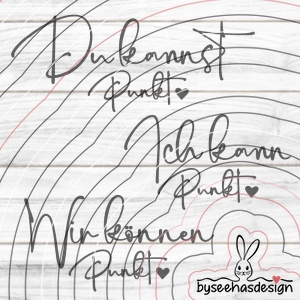 Du kannst
Punkt.
Ich kann
Punkt.
Wir können
Punkt.
byseehasdesign